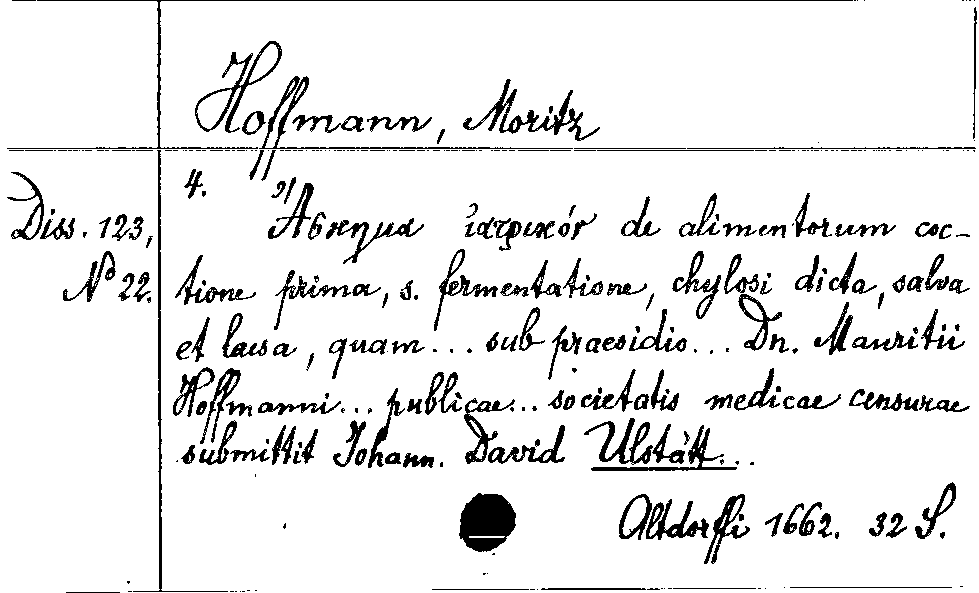 Hoffmann, Moritz
4.
Diss. 123, Ἄσκημα ἰατρικόν de alimentorum coc-
No 22. tione prima, s. fermentatione, chylosi dicta, salva
et laesa, quam... sub praesidio... Dn. Mauritii
Hoffmanni... publicae... societatis medicae censurae
submittit Johann. David Ulstätt...
Altdorffi 1662. 32 S.